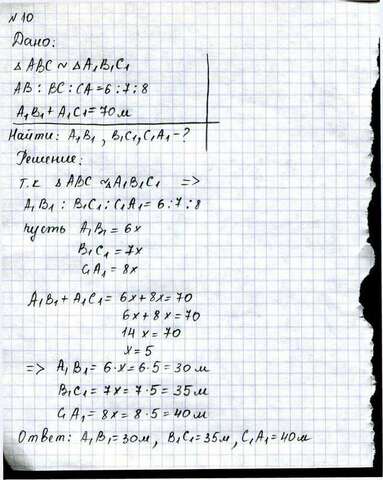 № 10
Дано:
△ ABC ~ △ A₁B₁C₁
AB : BC : CA = 6 : 7 : 8
A₁B₁ + A₁C₁ = 70 м
Найти: A₁B₁, B₁C₁, C₁A₁ - ?
Решение:
т.к △ ABC ~ △ A₁B₁C₁ =>
A₁B₁ : B₁C₁ : C₁A₁ = 6 : 7 : 8
пусть A₁B₁ = 6x
B₁C₁ = 7x
C₁A₁ = 8x
A₁B₁ + A₁C₁ = 6x + 8x = 70
6x + 8x = 70
14x = 70
x = 5
=> A₁B₁ = 6·x = 6·5 = 30 м
B₁C₁ = 7x = 7·5 = 35 м
C₁A₁ = 8x = 8·5 = 40 м
Ответ: A₁B₁ = 30м, B₁C₁ = 35м, C₁A₁ = 40м